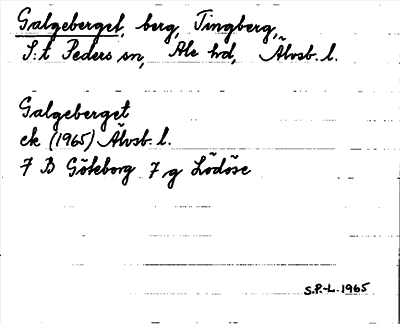 Galgeberget, berg, Tingberg,
S:t Peders sn, Ale hd, Älvsb. l.
Galgeberget
ek (1965) Älvsb. l.
7 B Göteborg 7 g Lödöse
S.P.-L. 1965